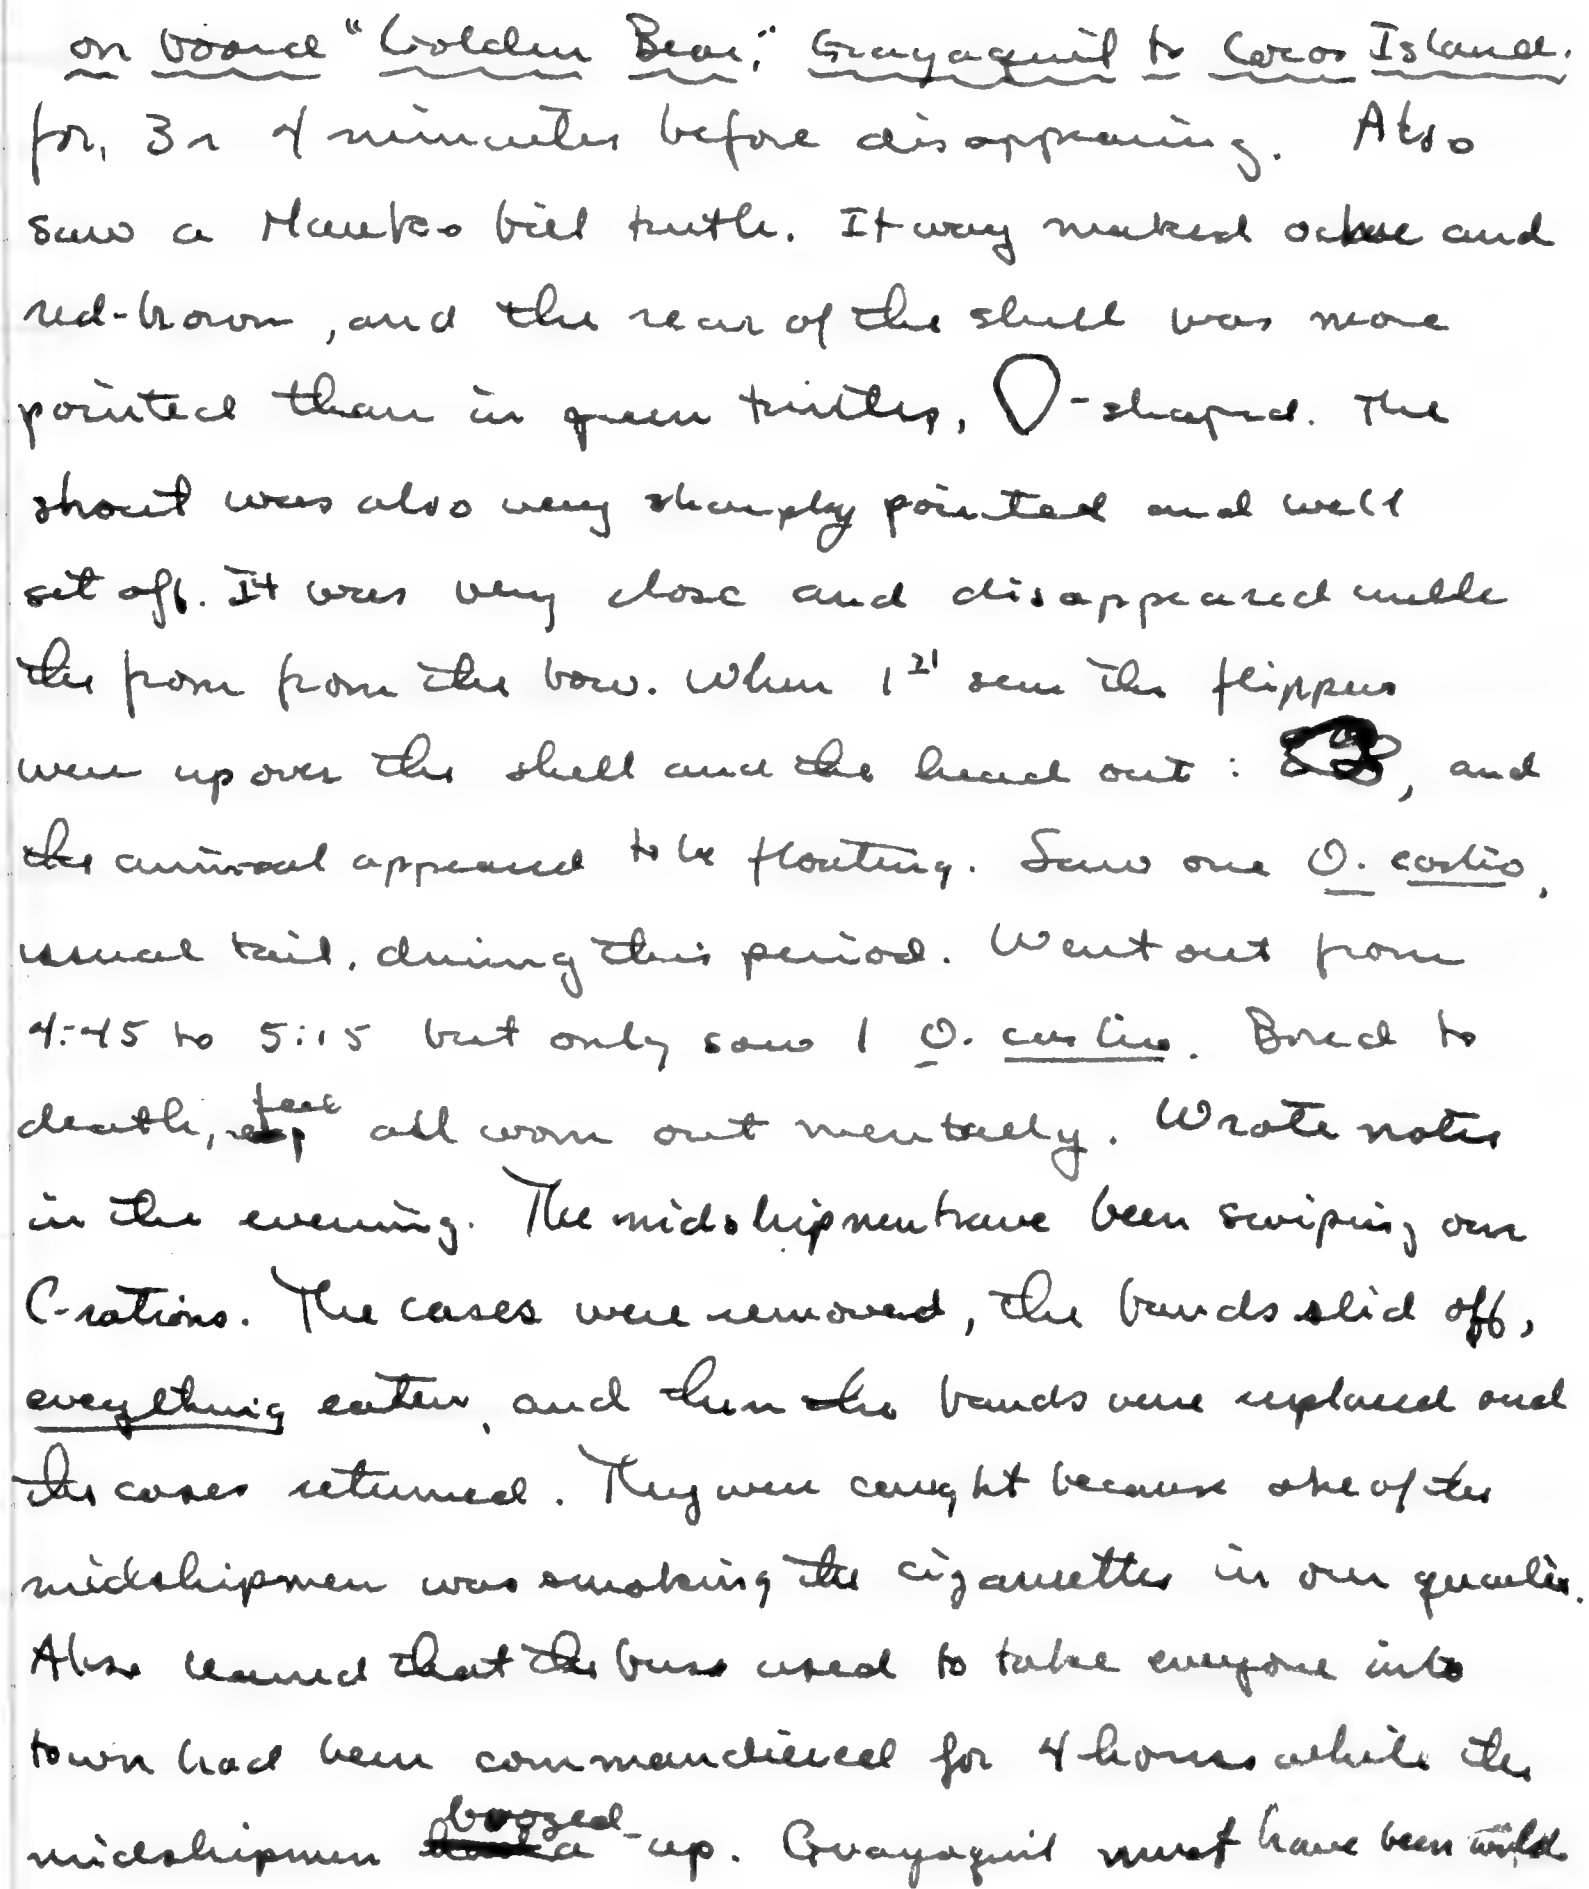 on board "Golden Bear," Guayaquil to Cocos Island.
for, 3 or 4 minutes before disappearing. Also
saw a Hawks bill turtle. It was marked ochre and
red-brown, and the rear of the shell was more
pointed than in green turtles, -shaped. The
snout was also very sharply pointed and well
set off. It was very close and disappeared under
the foam from the bow. When 1st seen the flippers
were up over the shell and the head out : , and
the animal appeared to be floating. Saw one O. castro,
usual tail, during this period. Went out from
4:45 to 5:15 but only saw 1 O. castro. Bored to
death, feel all worn out mentally. Wrote notes
in the evening. The midshipmen have been swiping our
C-rations. The cases were removed, the bands slid off,
everything eaten, and then the bands were replaced and
the cases returned. They were caught because one of the
midshipmen was smoking the cigarettes in our quarters.
Also learned that the bus used to take everyone into
town had been commandiered for 4 hours while the
midshipmen boozed-up. Guayaquil must have been wild